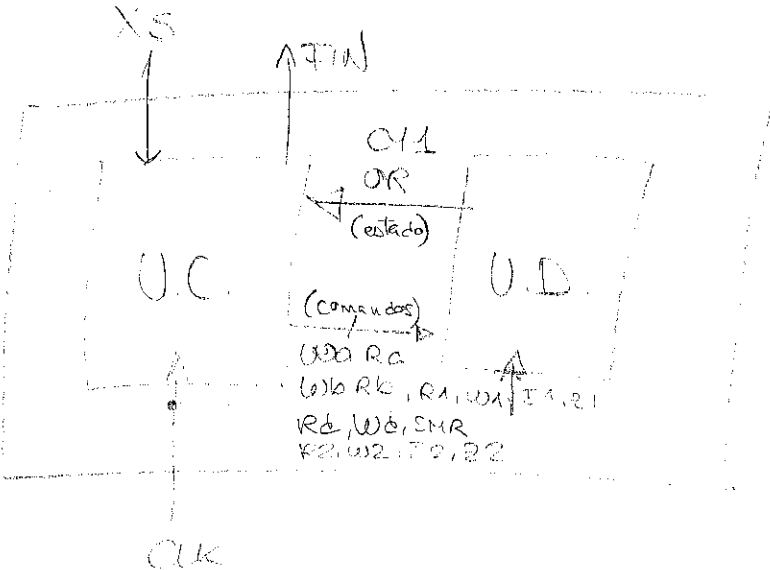 XS
FIN
OR
(estado)
U.C.
U.D.
(comandos)
Ra
Wb Rb, R1, W1, I1, Z1
Rd, Wd, SMR
R2, W2, I2, Z2
CLK